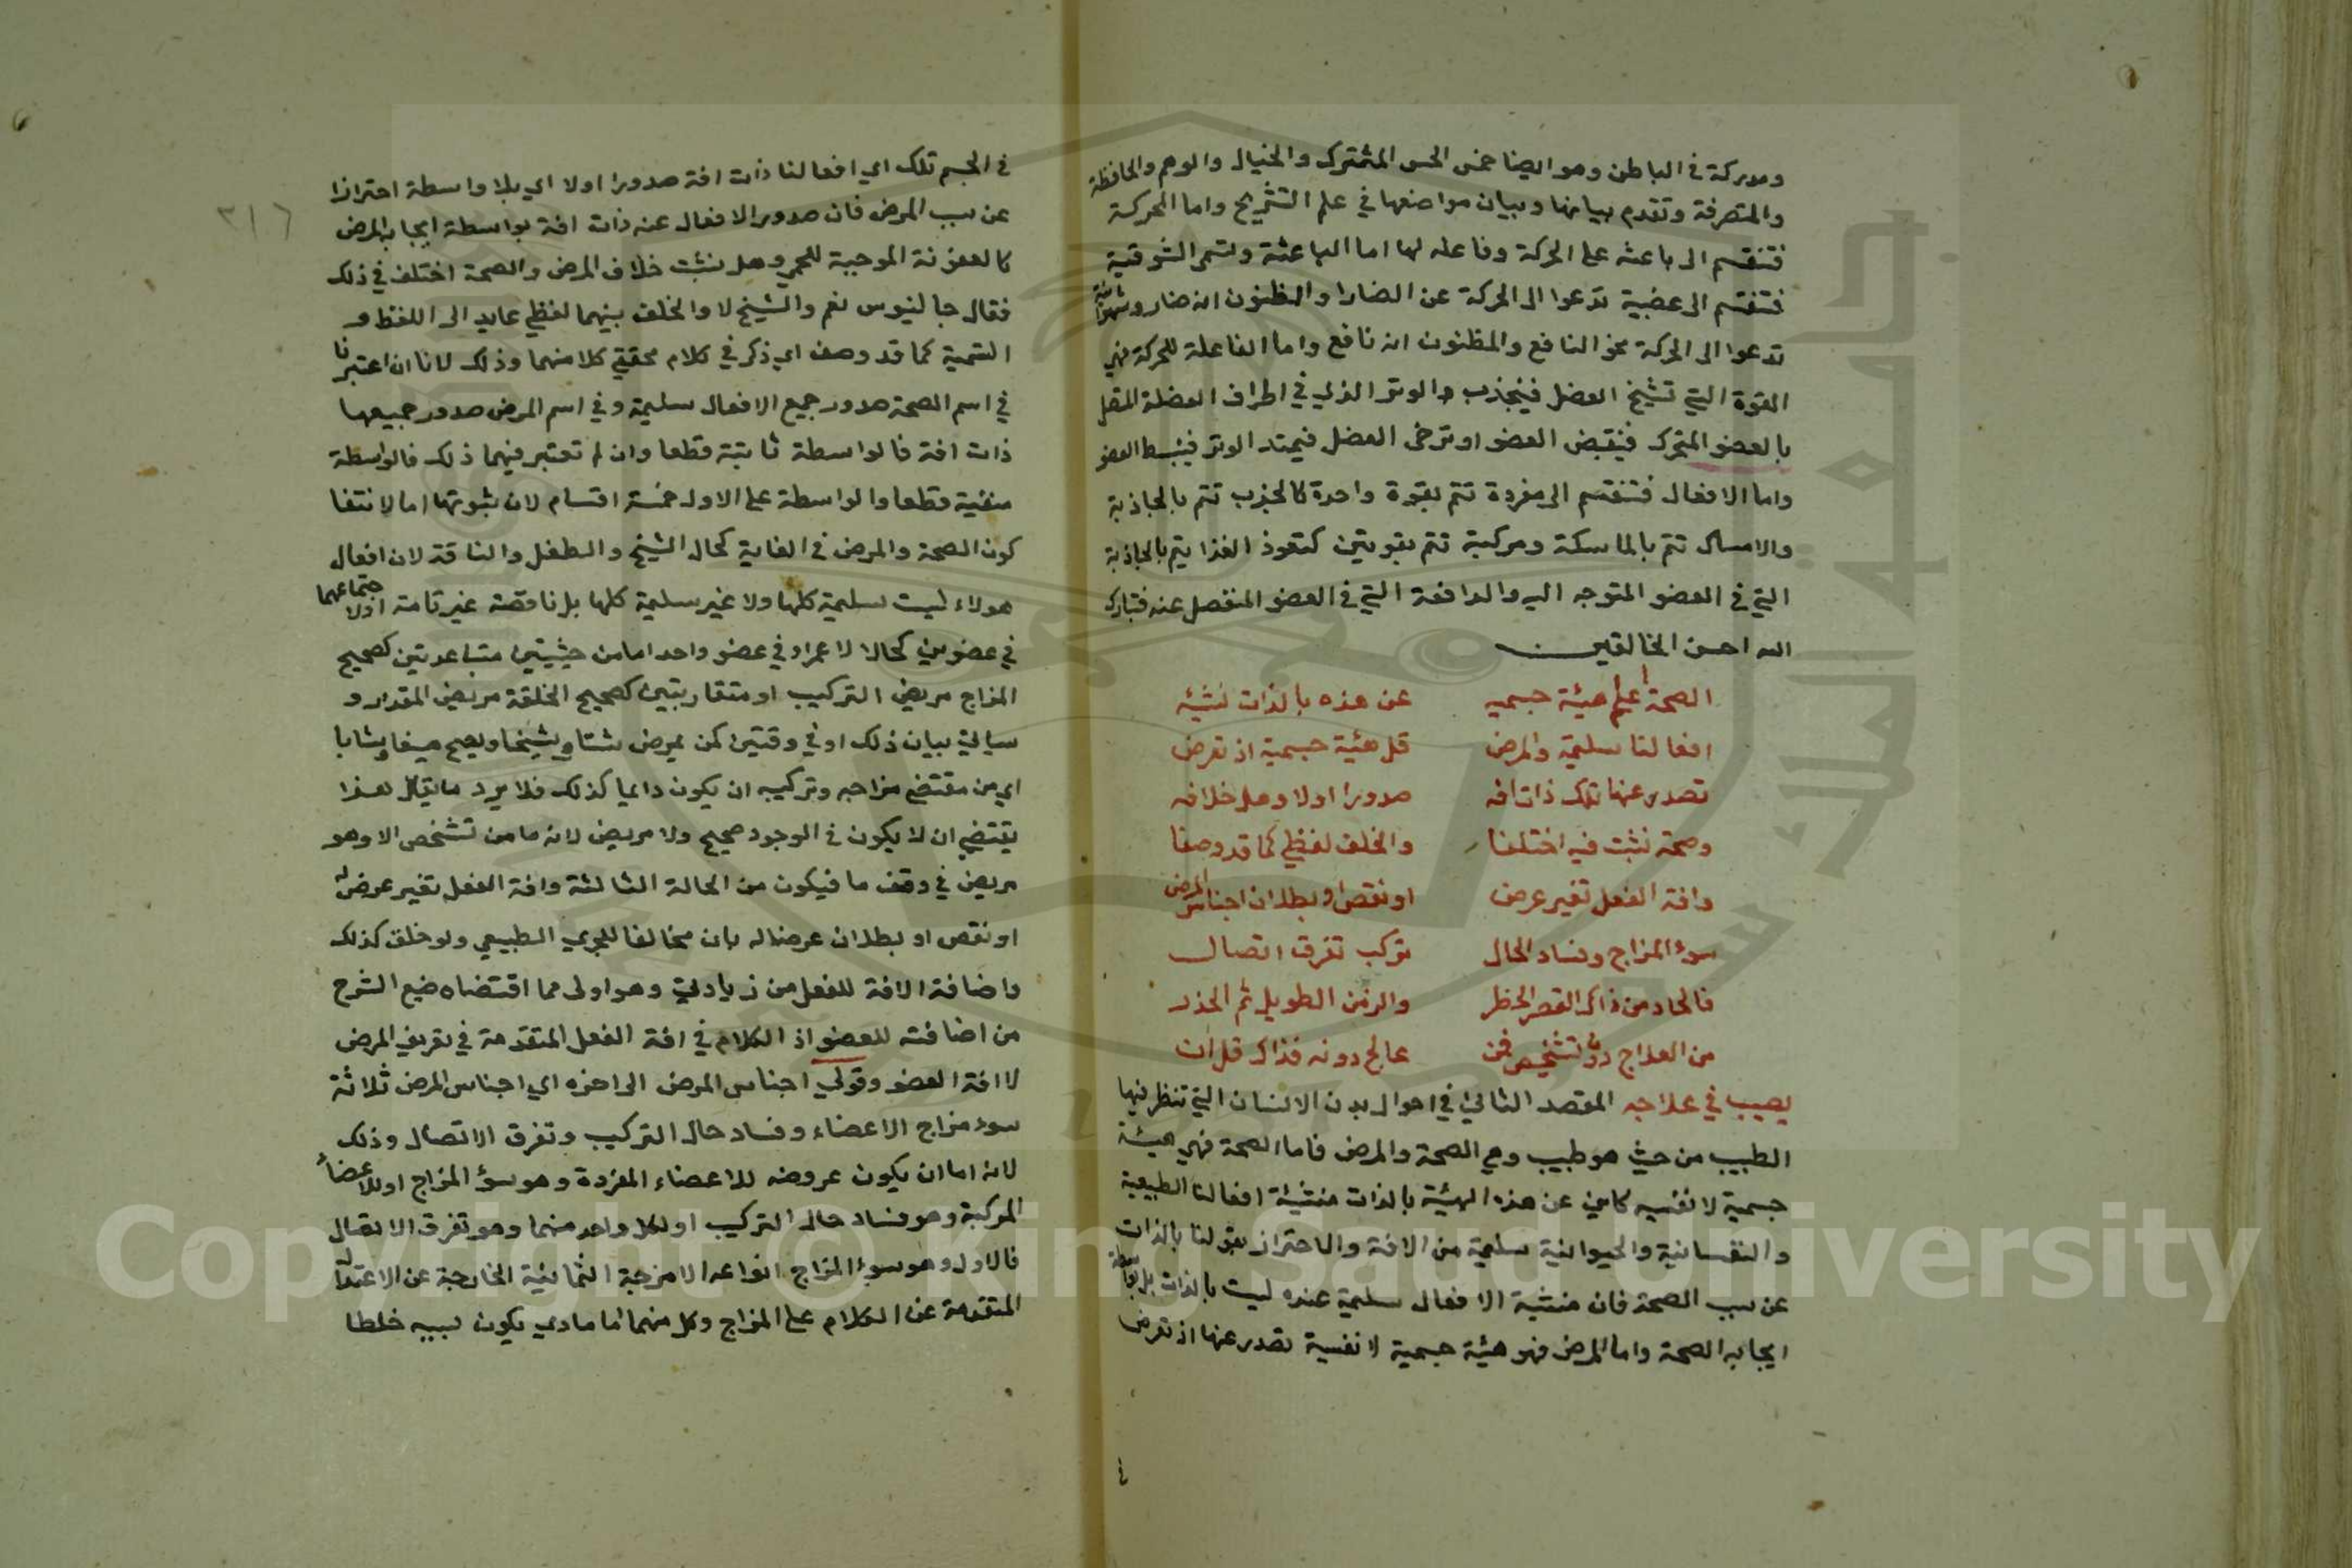 ومدركة في الباطن وهو ايضا خمس الحس المشترك والخيال والوهم والحافظة
والمتصرفة وتقدم بيانها وبيان مواضعها في علم التشريح واما المحركة
فتنقسم الى باعثة على الحركة وفاعلة لها اما الباعثة وتسمى الشوقية
فتنقسم الى غضبية تدعوا الى الحركة عن الضار او المظنون انه ضار وشهوانية
تدعوا الى الحركة نحو النافع والمظنون انه نافع واما الفاعلة للحركة فهي
القوة التي تشنج العضل فينجذب والوتر الذي في اطراف العضلة المتصل
بالعضو المتحرك فينقبض العضو او ترخى العضل فيمتد الوتر فينبسط العضو
واما الافعال فتنقسم الى مفردة تتم بقوة واحدة كالجذب تتم بالجاذبة
والامساك تتم بالماسكة ومركبة تتم بقوتين كنفوذ الغذا يتم بالجاذبة
التي في العضو المتوجه اليه والدافعة التي في العضو المنفصل عنه فتبارك
الله احسن الخالقين
الصحة اعلم هيئة جسميه عن هذه بالذات نشئيه
افعالنا سليمة والمرض قل هئية جسمية اذ تعرض
تصدر عنها تلك ذات افه صدورا اولا وهل خلافه
وصحة نثبت فيه اختلفا والخلف لفظي كما قد وصفا
وافة الفعل تغير عرض او نقص او بطلان اجناس المرض
سوء المزاج وفساد الحال تركب تفرق اتصال
فالحاد من ذاك القصر الخطر والزمن الطويل ثم الحذر
من العلاج دون تشخيص فمن عالج دونه فذاك قل ان
يصيب في علاجه المقصد الثاني في احوال بدن الانسان التي تنظر فيها
الطبيب من حيث هو طبيب وهي الصحة والمرض فاما الصحة فهي هيئة
جسمية لا نفسيه كاين عن هذه الهيئة بالذات منشئية افعالنا الطبيعية
والنفسانية والحيوانية سليمة من الافة والاحتراز بقولنا بالذات
عن سبب الصحة فان منشية الافعال سليمة عنده ليست بالذات بل بواسطة
ايجابه الصحة واما المرض فهو هئية جسمية لا نفسية تصدر عنها اذ تعرض
في
٢١٦
في الجسم تلك اي افعالنا ذات افة صدورا اولا اي بلا واسطة احترازا
عن سبب المرض فان صدور الافعال عنه ذات افة بواسطة ايجابه المرض
كالعفونة الموجبة للحمى وهل نثبت خلاف المرض والصحة اختلف في ذلك
فقال جالنيوس نعم والشيخ لا والخلف بينهما لفظي عايد الى اللفظ و
التسمية كما قد وصف اي ذكر في كلام محققي كلا منهما وذلك لانا ان اعتبرنا
في اسم الصحة صدور جميع الافعال سليمة وفي اسم المرض صدور جميعها
ذات افة فالواسطة ثابتة قطعا وان لم تعتبر فيهما ذلك فالواسطة
منفية قطعا والواسطة على الاول خمسة اقسام لان ثبوتها اما لانتفا
كون الصحة والمرض في الغاية كحال الشيخ والطفل والناقة لان افعال
هولاء ليست سليمة كلها ولا غير سليمة كلها بل ناقصة غير تامة او لاجتماعهما
في عضوين كحال الاعمى او في عضو واحد اما من حيثيتين متباعدتين كصحيح
المزاج مريض التركيب او متقاربتين كصحيح الخلقة مريض المقدار و
سياتي بيان ذلك او في وقتين كمن يمرض شتا وشيخا ويصح صيفا وشابا
اي من مقتضى مزاجه وتركيبه ان يكون دايما كذلك فلا يرد ما يقال هذا
يقتضي ان لا يكون في الوجود صحيح ولا مريض لانه ما من شخص الا وهو
مريض في وقت ما فيكون من الحالة الثالثة وافة الفعل تغير عرض له
او نقص او بطلان عرضا له بان مخالفا للمجرى الطبيعي ولو خلق كذلك
واضافة الافة للفعل من زيادتي وهو اولى مما اقتضاه صنيع الشرح
من اضافته للعضو اذ الكلام في افة الفعل المتقدمة في تعريف المرض
لا افة العضو وقولي اجناس المرض الى اخره اي اجناس المرض ثلاثة
سوء مزاج الاعضاء وفساد حال التركيب وتفرق الاتصال وذلك
لانه اما ان يكون عروضه للاعضاء المفردة وهو سؤ المزاج او للاعضاء
المركبة وهو فساد حال التركيب او لكل واحد منهما وهو تفرق الاتصال
فالاول وهو سوء المزاج انواعه الامزجة الثمانية الخارجة عن الاعتدال
المتقدمة عن الكلام على المزاج وكل منهما اما مادي يكون لسببه خلطا
Copyright © King Saud University